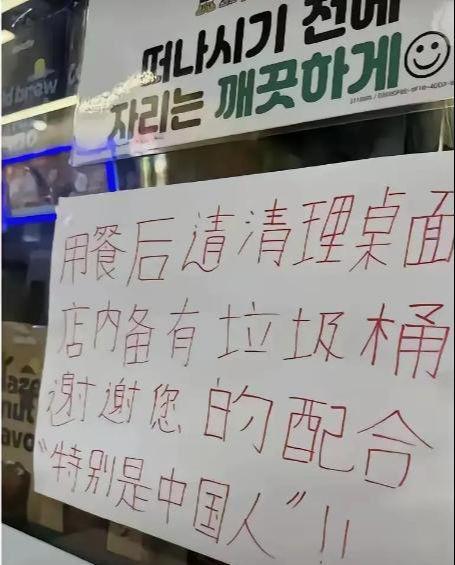 떠나시기 전에
자리는 깨끗하게
ld brew
用餐后请清理桌面
店内备有垃圾桶
谢谢您的配合
“特别是中国人”!!
aze
nut
avo